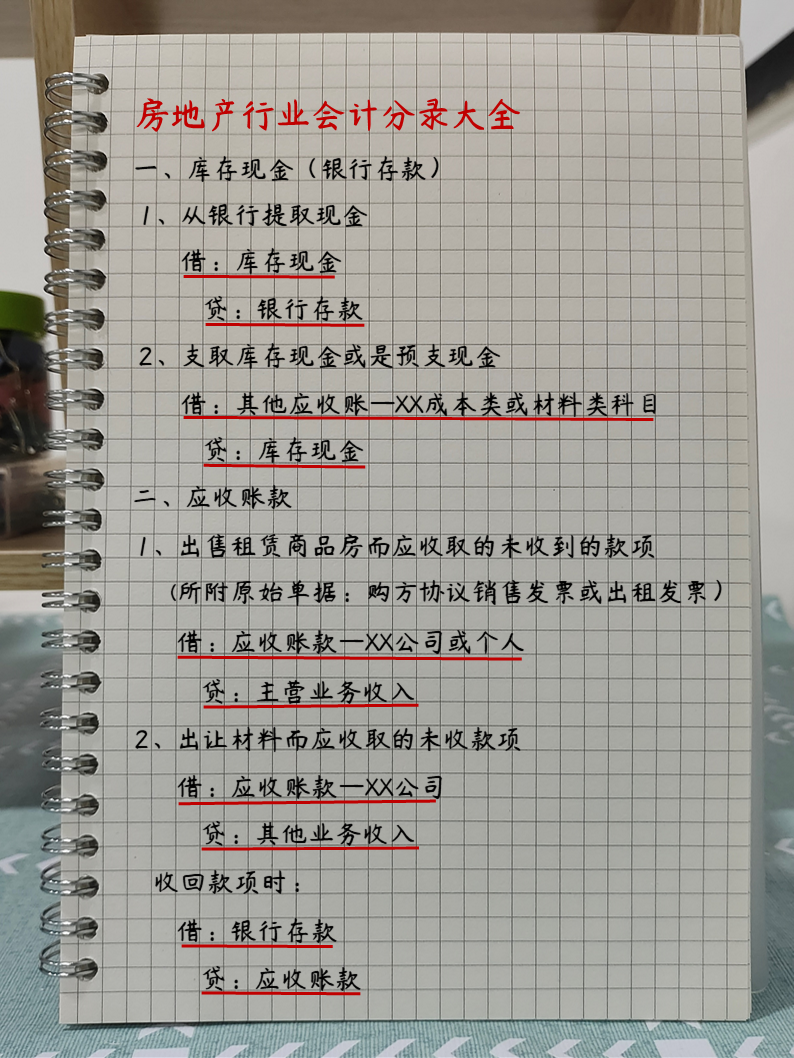 房地产行业会计分录大全
一、库存现金（银行存款）
1、从银行提取现金
借：库存现金
贷：银行存款
2、支取库存现金或是预支现金
借：其他应收账—XX成本类或材料类科目
贷：库存现金
二、应收账款
1、出售租赁商品房而应收取的未收到的款项
(所附原始单据：购方协议销售发票或出租发票）
借：应收账款—XX公司或个人
贷：主营业务收入
2、出让材料而应收取的未收款项
借：应收账款—XX公司
贷：其他业务收入
收回款项时：
借：银行存款
贷：应收账款